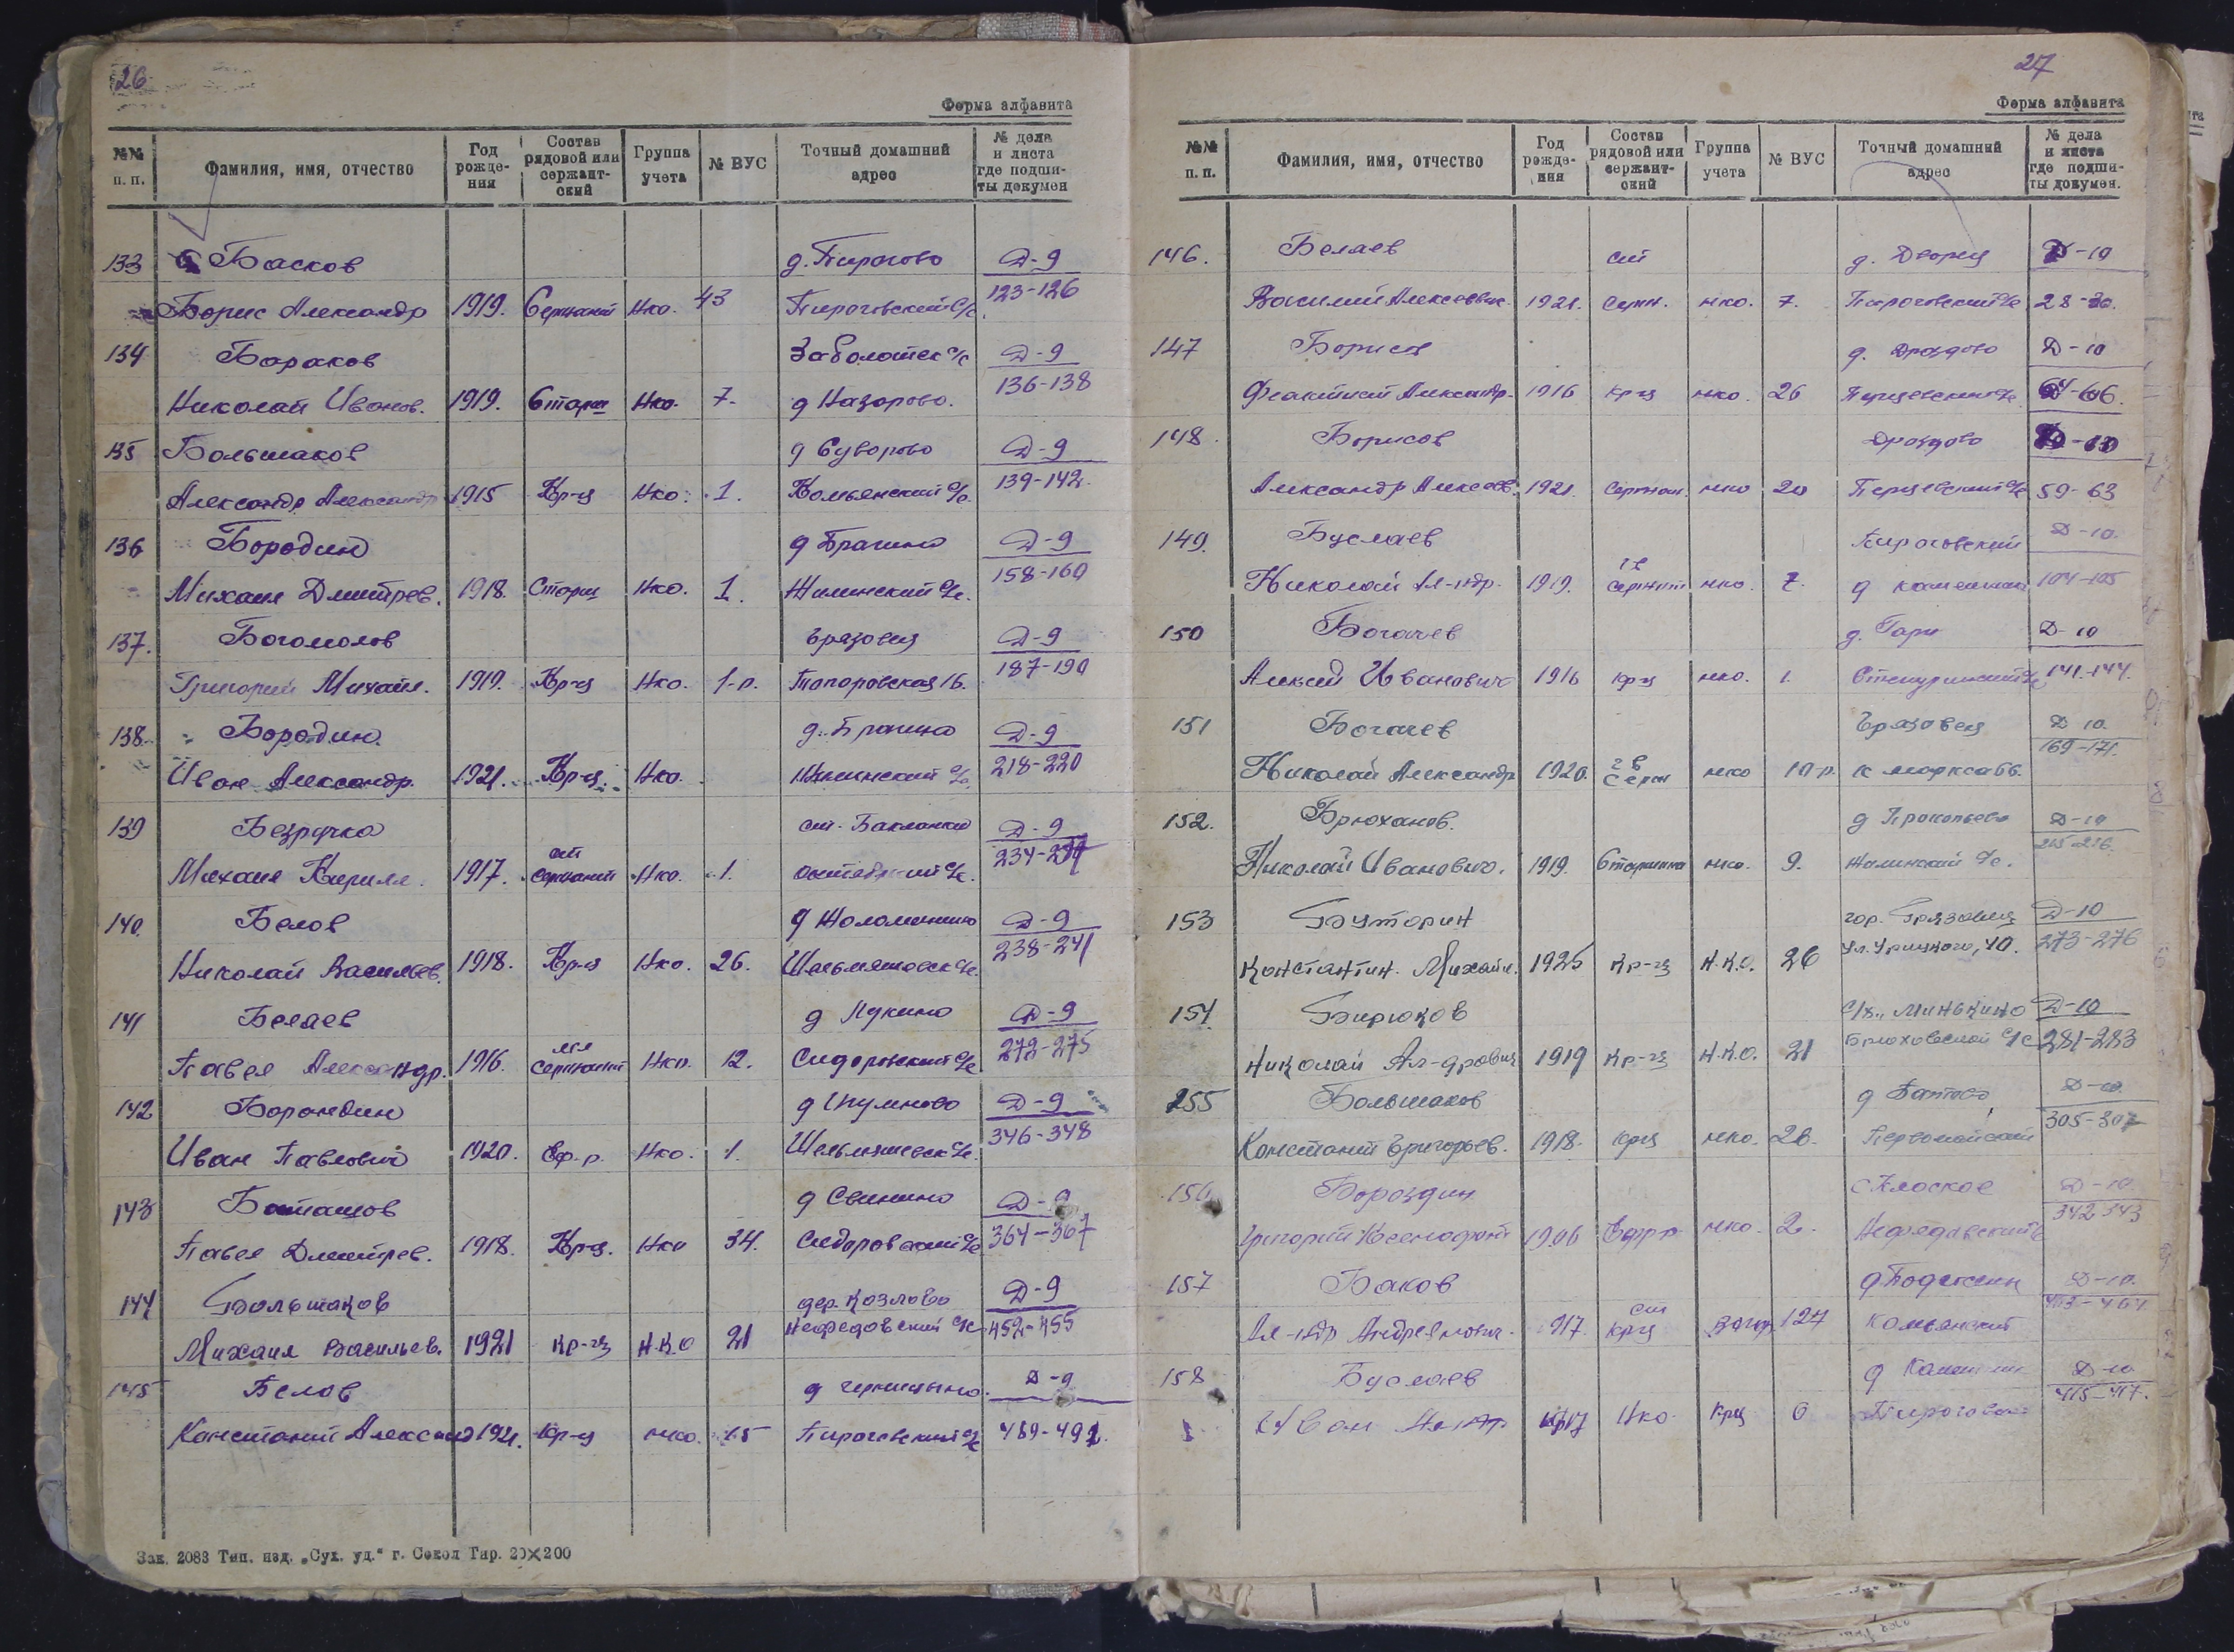 26
Форма алфавита
№№ п. п. Фамилия, имя, отчество Год рожде-ния Состав рядовой или сержант-ский Группа учета № ВУС Точный домашний адрес № дела и листа где подши-ты докумен
133 Басков д. Пирогово Д-9
Борис Александр 1919. Сержант Нко. 43 Пироговский с/с 123-126
134 Бараков Заболотск с/с Д-9
Николай Иванов. 1919. Старш Нко. 7. д Назорово. 136-138
135 Большаков д Суворово Д-9
Александр Александр 1915 Кр-ц Нко. 1. Комьянский с/с. 139-142.
136 Бородин д Брагино Д-9
Михаил Дмитрев. 1918. Старш Нко. 1. Жилинский с/с. 158-160
137. Богомолов Грязовец Д-9
Григорий Михайл. 1919. Кр-ц Нко. 1-р. Топоровская 16. 187-190
138. Бородин. д. Брагино Д-9
Иван Александр. 1921. Кр-ц. Нко. Жилинский с/с. 218-220
139 Безручко ст. Бакланка Д-9
Михаил Кирилл. 1917. ст сержант Нко. 1. октябрьский с/с. 234-237
140. Белов Д-9
Николай Васильев. 1918. Кр-ц Нко. 26. 238-241
141 Беляев д Лукино Д-9
Павел Александр. 1916. мл сержант Нко. 12. Сидоровский с/с 272-275
142 Борондин Д-9
Иван Павлович 1920. Еф-р. Нко. 1. 346-348
143 Баташов д Свинино Д-9
Павел Дмитрев. 1918. Кр-ц. Нко 34. Сидоровский с/с 364-367
144 Большаков дер. Козлово Д-9
Михаил Васильев. 1921 Кр-ец Н.К.О 21 Нефедовский с/с 452-455
145 Белов д Черницыно. Д-9
Констант Александ 1921. Кр-ц нко. 15 Пироговский с/с 489-492.
Зак. 2083 Тип. изд. „Сух. уд.“ г. Сокол Тир. 20×200
27
Форма алфавита
№№ п. п. Фамилия, имя, отчество Год рожде-ния Состав рядовой или сержант-ский Группа учета № ВУС Точный домашний адрес № дела и листа где подши-ты докумен.
146. Беляев ст д. Дворец Д-10
Василий Алексеевич. 1921. Серж. нко. 7. Пироговский с/с 28-30.
147 Борисов д. Дроздово Д-10
Александр. 1916 кр-ц нко. 26 Перцевский с/с 64-66.
148. Борисов Дроздово Д-10
Александр Алексеев. 1921. Сержан. нко 20 Перцевский с/с 59-63
149. Буслаев Пироговский Д-10.
Николай Ал-ндр. 1919. Сержант нко. 7. 104-105
150 Богачев д. Гари Д-10
Алексей Иванович 1916 кр-ц нко. 1. 141-144.
151 Богачев Грязовец Д 10.
Николай Александр 1920. Серж нко 10-р. К маркса 66. 169-171.
152. Брюханов. д Прокопьево Д-10
Николай Иванович. 1919. Старшина нко. 9. Жилинский с/с. 215-216.
153 Буторин гор. Грязовец Д-10
Константин. Михайл. 1925 Кр-ец Н.К.О. 26 Ул. Урицкого, 40. 273-276
154. Бирюков Минькино Д-10
Николай Ал-дрович 1919 Кр-ец Н.К.О. 21 с/с 281-283
155 Большаков Д-10.
Констант Григорьев. 1918. крц нко. 26. Первомайский 305-307
156 Бороздин с Плоское Д-10.
Григорий Ксенофонт 1906 Ефр-р нко. 2. Нефедовский с/с 342 343
157 Баков Д-10.
Ал-ндр Андреянович. 917. ст крц 124 Комьянский
158 Буслаев Д-10
Иван 1917 Нко. Крц 6 415-417.